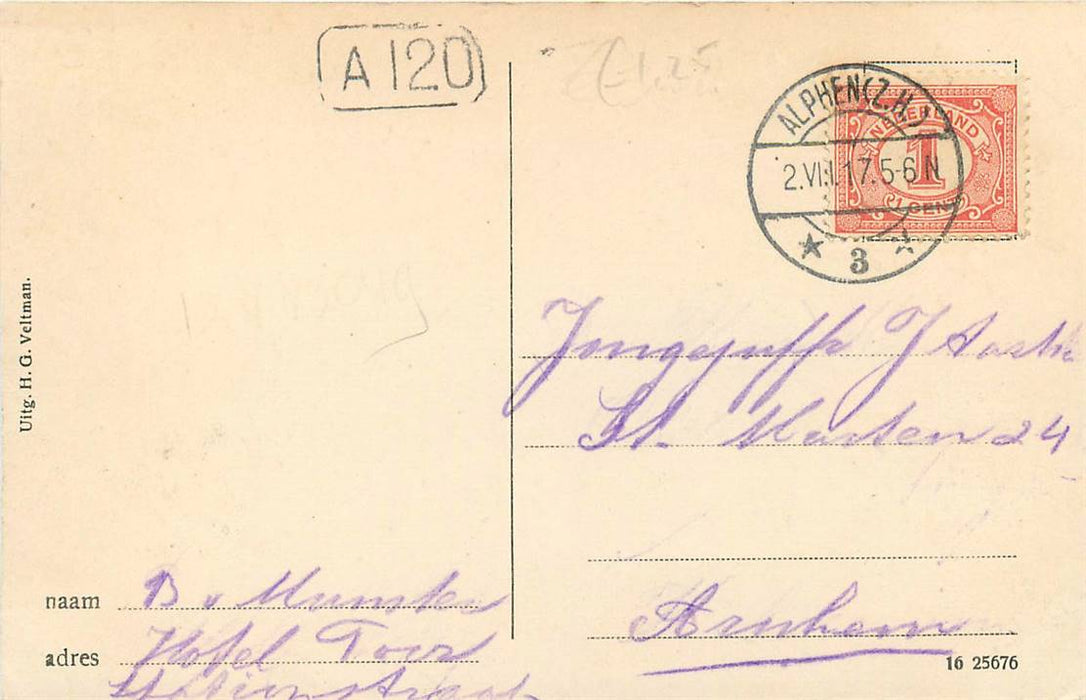 A 120
€ 1.25
ALPHEN (Z.H.)
2.VIII.17.5-6 N
3
NEDERLAND
1
1 CENT
Uitg. H. G. Veltman.
Jongejuffr J
St. Marten 24
Arnhem
naam B v Munster
adres Hotel Toor
Stationstraat
16 25676